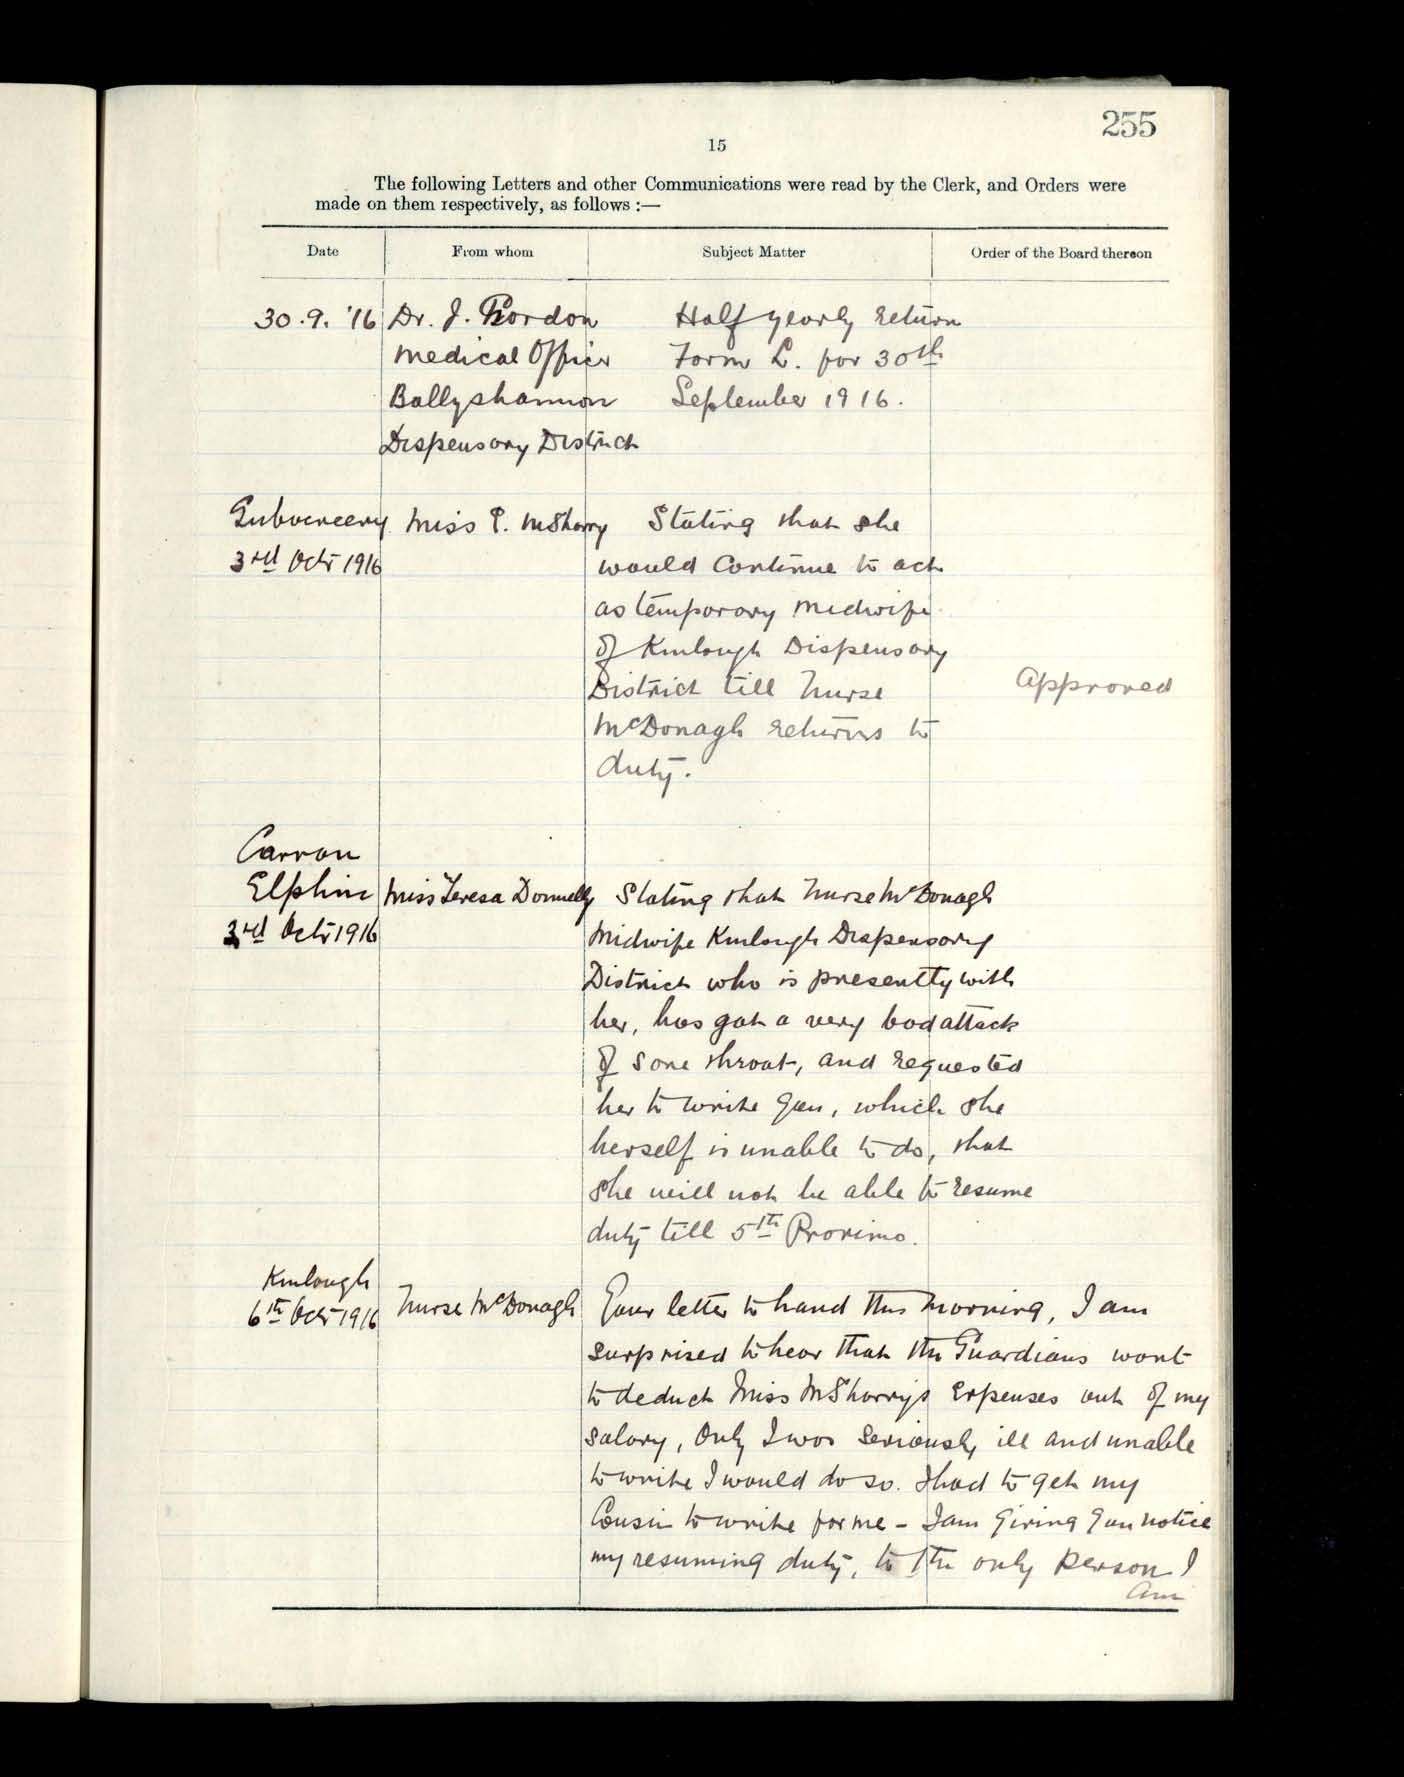 255
15
The following Letters and other Communications were read by the Clerk, and Orders were
made on them respectively, as follows :—
Date From whom Subject Matter Order of the Board thereon
30.9.'16 Dr. J. Gordon Half yearly return
Medical Officer Form L. for 30th
Ballyshannon September 1916.
Dispensary District
Gubvereeny Miss E. McSharry Stating that she
3rd Octr 1916 would continue to act
as temporary midwife
of Kinlough Dispensary
District till Nurse Approved
McDonagh returns to
duty.
Carron
Elphin Miss Teresa Donnelly Stating that Nurse McDonagh
3rd Octr 1916 Midwife Kinlough Dispensary
District who is presently with
her, has got a very bad attack
of sore throat, and requested
her to write you, which she
herself is unable to do, that
she will not be able to resume
duty till 5th Proximo.
Kinlough
6th Octr 1916 Nurse McDonagh Your letter to hand this morning, I am
surprised to hear that the Guardians want
to deduct Miss McSharry's expenses out of my
salary, Only I was seriously ill and unable
to write I would do so. I had to get my
Cousin to write for me - I am giving you notice
my resuming duty, to the only person I
am